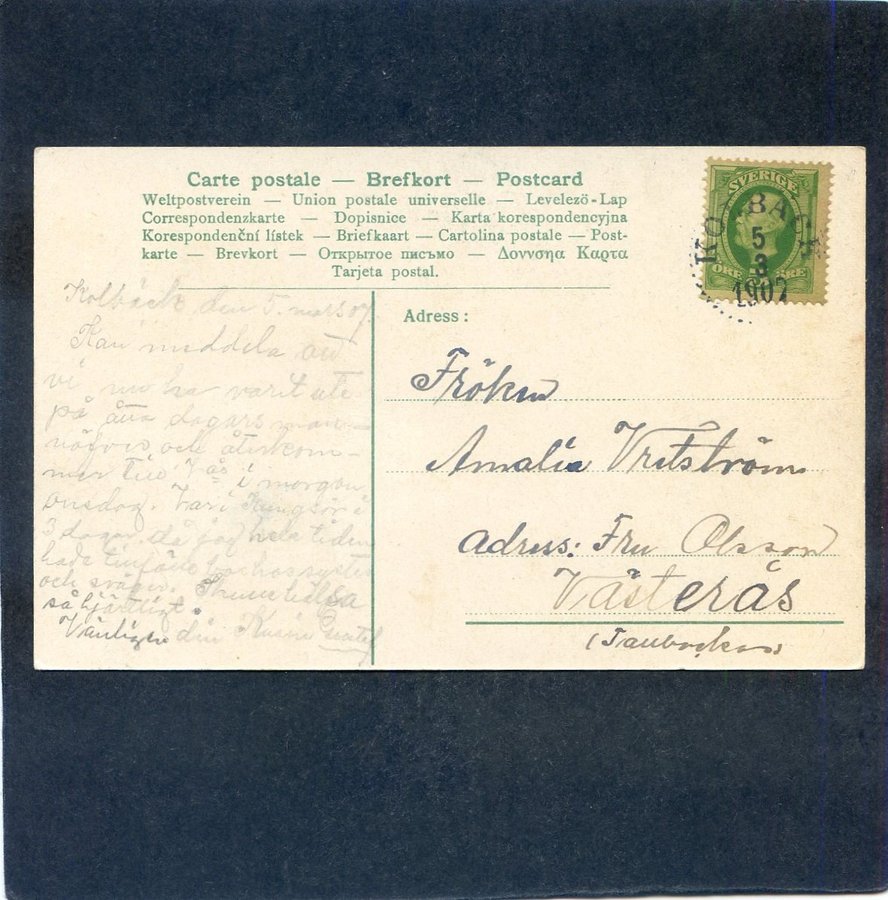 Carte postale — Brefkort — Postcard
Weltpostverein — Union postale universelle — Levelezö-Lap
Correspondenzkarte — Dopisnice — Karta korespondencyjna
Korespondenční lístek — Briefkaart — Cartolina postale — Post-
karte — Brevkort — Открытое письмо — Δоννσηα Καρτα
Tarjeta postal.
SVERIGE
ÖRE ÖRE
KOLBÄCK
5
3
1907
Kolbäck den 5. mars 07.
Kan meddela att
vi nu ha varit ute
på åtta dagars man-
och återkom-
mer till i morgon
onsdag. Var i Kungsör i
3 dagar, då jag hela tiden
hade hos syster
och svåger.
så hjärtligt.
Vänligen din Karin
Adress:
Fröken
Amalia
Adress: Fru Olsson
Västerås